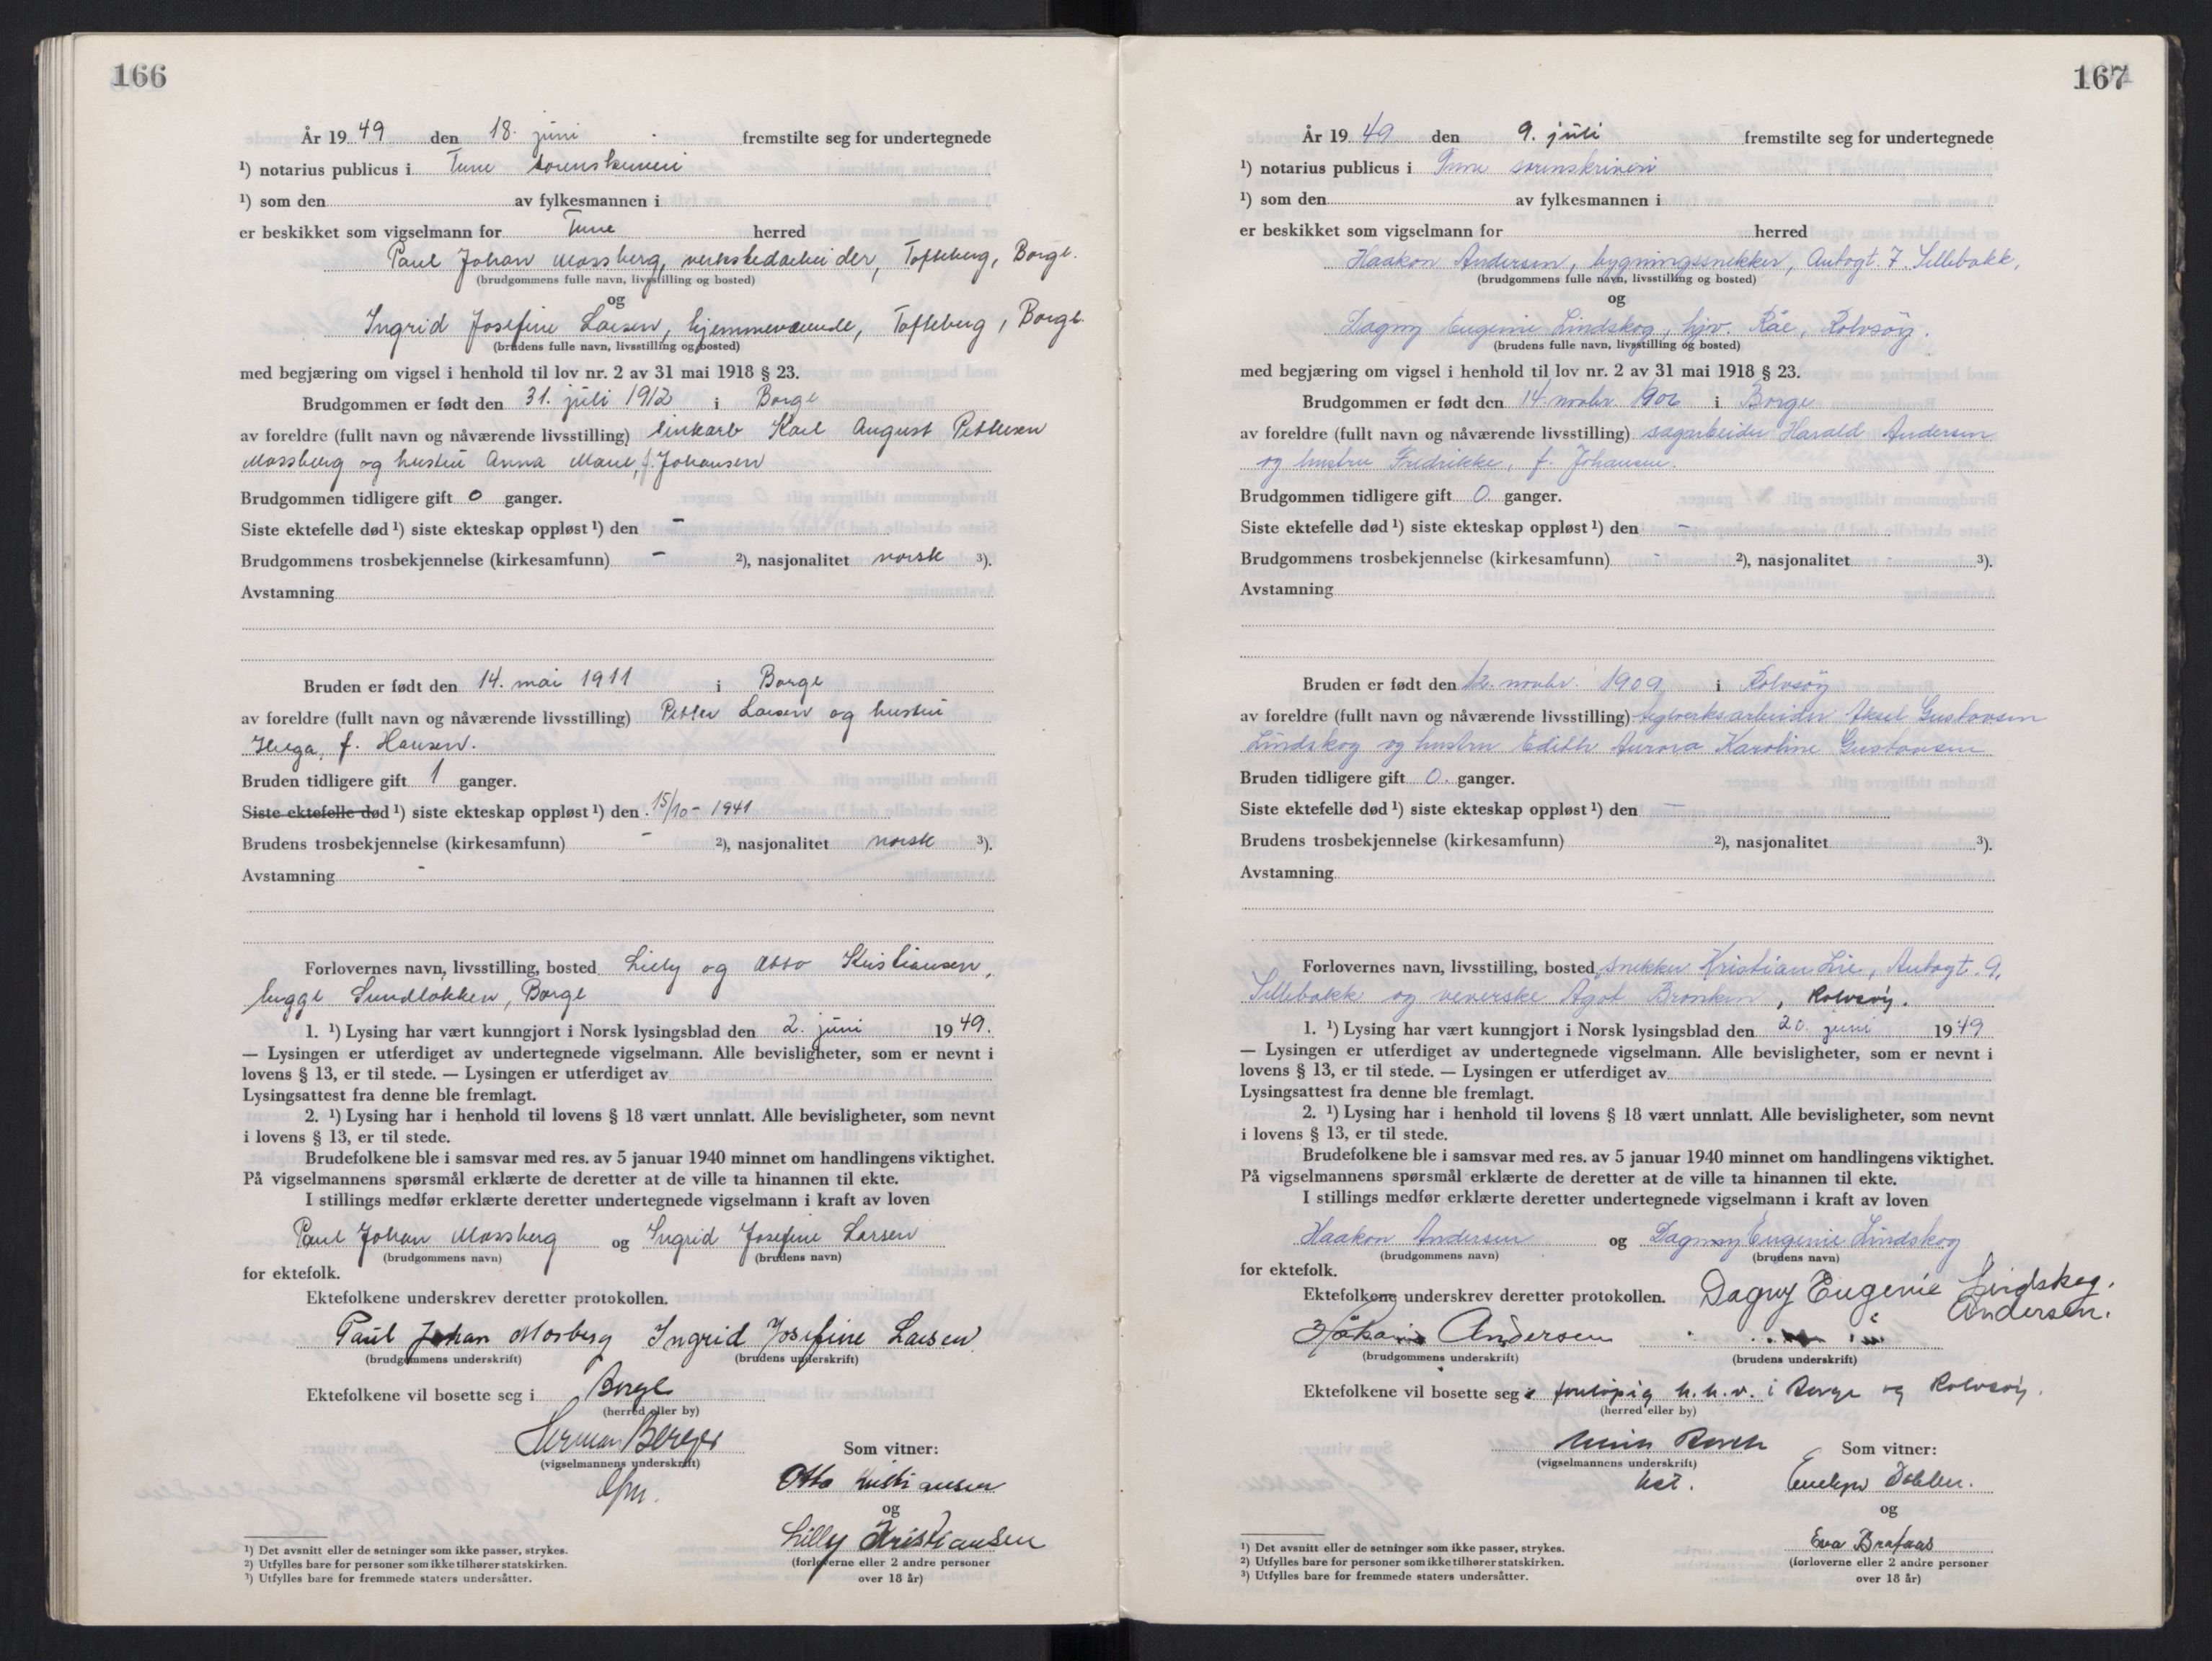 166
År 19 49 den 18. juni fremstilte seg for undertegnede
¹) notarius publicus i Tune sorenskriveri
¹) som den av fylkesmannen i
er beskikket som vigselmann for Tune herred
Paul Johan Mossberg, verkstedarbeider, Tofteberg, Borge.
(brudgommens fulle navn, livsstilling og bosted)
og
Ingrid Josefine Larsen, hjemmeværende, Tofteberg, Borge.
(brudens fulle navn, livsstilling og bosted)
med begjæring om vigsel i henhold til lov nr. 2 av 31 mai 1918 § 23.
Brudgommen er født den 31. juli 1912 i Borge
av foreldre (fullt navn og nåværende livsstilling) Karl August Pettersen
Mossberg og hustru Anna Marie, f. Johansen
Brudgommen tidligere gift 0 ganger.
Siste ektefelle død ¹) siste ekteskap oppløst ¹) den -
Brudgommens trosbekjennelse (kirkesamfunn) - ²), nasjonalitet norsk ³).
Avstamning
Bruden er født den 14. mai 1911 i Borge
av foreldre (fullt navn og nåværende livsstilling) Petter Larsen og hustru
Helga, f. Hansen.
Bruden tidligere gift 1 ganger.
Siste ektefelle død ¹) siste ekteskap oppløst ¹) den 15/10 - 1941
Brudens trosbekjennelse (kirkesamfunn) - ²), nasjonalitet norsk ³).
Avstamning -
Forlovernes navn, livsstilling, bosted Lilly og Otto Kristiansen,
begge Sundløkken, Borge
1. ¹) Lysing har vært kunngjort i Norsk lysingsblad den 2. juni 19 49.
— Lysingen er utferdiget av undertegnede vigselmann. Alle bevisligheter, som er nevnt i
lovens § 13, er til stede. — Lysingen er utferdiget av
Lysingsattest fra denne ble fremlagt.
2. ¹) Lysing har i henhold til lovens § 18 vært unnlatt. Alle bevisligheter, som nevnt
i lovens § 13, er til stede.
Brudefolkene ble i samsvar med res. av 5 januar 1940 minnet om handlingens viktighet.
På vigselmannens spørsmål erklærte de deretter at de ville ta hinannen til ekte.
I stillings medfør erklærte deretter undertegnede vigselmann i kraft av loven
Paul Johan Mossberg og Ingrid Josefine Larsen
(brudgommens navn) (brudens navn)
for ektefolk.
Ektefolkene underskrev deretter protokollen.
Paul Johan Mosberg Ingrid Josefine Larsen
(brudgommens underskrift) (brudens underskrift)
Ektefolkene vil bosette seg i Borge
(herred eller by)
Herman Berger
(vigselmannens underskrift)
Som vitner:
Otto Kristiansen
og
Lilly Kristiansen
(forloverne eller 2 andre personer
over 18 år)
¹) Det avsnitt eller de setninger som ikke passer, strykes.
²) Utfylles bare for personer som ikke tilhører statskirken.
³) Utfylles bare for fremmede staters undersåtter.
167
År 19 49 den 9. juli fremstilte seg for undertegnede
¹) notarius publicus i Tune sorenskriveri
¹) som den av fylkesmannen i
er beskikket som vigselmann for herred
Haakon Andersen, bygningssnekker, Aubogt. 7 Sellebakk,
(brudgommens fulle navn, livsstilling og bosted)
og
Dagny Eugenie Lindskog, hjv. Råe, Rolvsøy.
(brudens fulle navn, livsstilling og bosted)
med begjæring om vigsel i henhold til lov nr. 2 av 31 mai 1918 § 23.
Brudgommen er født den 14. novbr. 1906 i Borge
av foreldre (fullt navn og nåværende livsstilling) sagarbeider Harald Andersen
og hustru Fredrikke, f. Johansen.
Brudgommen tidligere gift 0. ganger.
Siste ektefelle død ¹) siste ekteskap oppløst ¹) den -
Brudgommens trosbekjennelse (kirkesamfunn) - ²), nasjonalitet ³).
Avstamning
Bruden er født den 12. novbr. 1909 i Rolvsøy
av foreldre (fullt navn og nåværende livsstilling) teglverksarbeider Aksel Gustavsen
Lindskog og hustru Edith Aurora Karoline Gustavsen
Bruden tidligere gift 0. ganger.
Siste ektefelle død ¹) siste ekteskap oppløst ¹) den -
Brudens trosbekjennelse (kirkesamfunn) ²), nasjonalitet ³).
Avstamning
Forlovernes navn, livsstilling, bosted snekker Kristian Lie, Aubogt. 9,
Sellebakk og veverske Ågot Bronken, Rolvsøy.
1. ¹) Lysing har vært kunngjort i Norsk lysingsblad den 20. juni 19 49
— Lysingen er utferdiget av undertegnede vigselmann. Alle bevisligheter, som er nevnt i
lovens § 13, er til stede. — Lysingen er utferdiget av
Lysingsattest fra denne ble fremlagt.
2. ¹) Lysing har i henhold til lovens § 18 vært unnlatt. Alle bevisligheter, som nevnt
i lovens § 13, er til stede.
Brudefolkene ble i samsvar med res. av 5 januar 1940 minnet om handlingens viktighet.
På vigselmannens spørsmål erklærte de deretter at de ville ta hinannen til ekte.
I stillings medfør erklærte deretter undertegnede vigselmann i kraft av loven
Haakon Andersen og Dagny Eugenie Lindskog
(brudgommens navn) (brudens navn)
for ektefolk.
Ektefolkene underskrev deretter protokollen. Dagny Eugenie Lindskog.
Andersen.
Håkon Andersen
(brudgommens underskrift) (brudens underskrift)
Ektefolkene vil bosette seg foreløpig h.h.v. i Borge og Rolvsøy.
(herred eller by)
(vigselmannens underskrift)
Som vitner:
Evelyn
og
Eva
(forloverne eller 2 andre personer
over 18 år)
¹) Det avsnitt eller de setninger som ikke passer, strykes.
²) Utfylles bare for personer som ikke tilhører statskirken.
³) Utfylles bare for fremmede staters undersåtter.